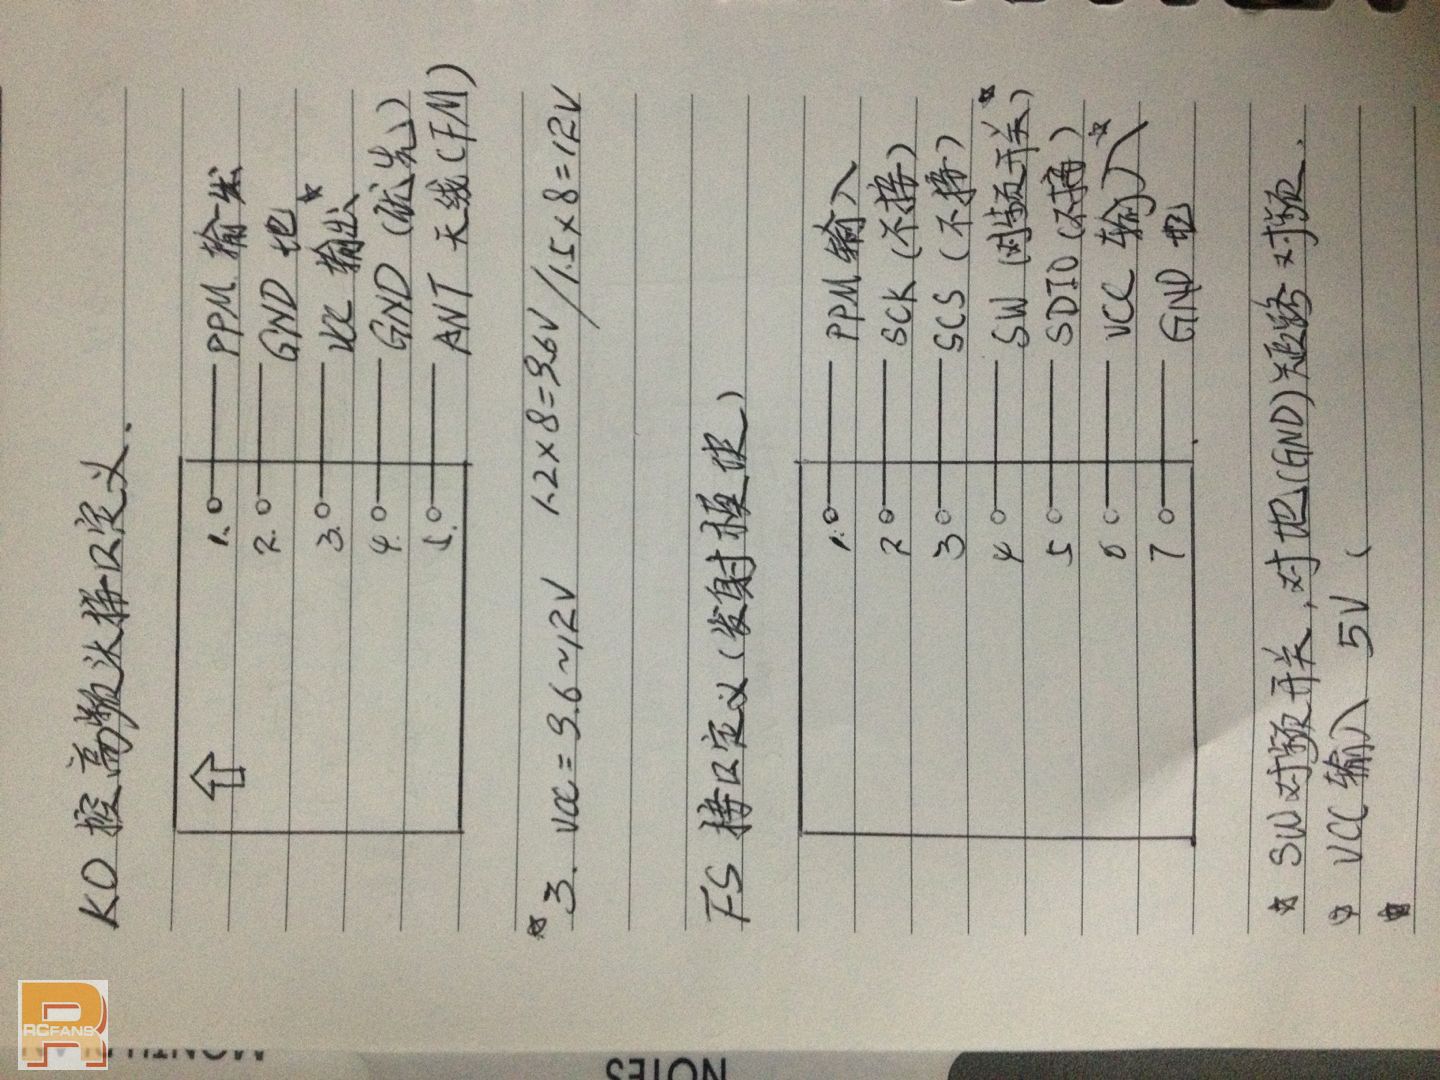 KO 控高频头接口定义.
1. PPM 输出
2. GND 地
3. VCC 输出 ☆
4. GND (优先)
5. ANT 天线 (FM)
☆ 3. VCC = 9.6~12V 1.2×8=9.6V / 1.5×8=12V
FS 接口定义 (发射板使)
1. PPM 输入
2 SCK (不接)
3 SCS (不接)
4 SW (对频开关) ☆
5 SDIO (不接)
6 VCC 输入 ☆
7 GND 地
☆ SW 对频开关, 对地(GND)短路对频.
☆ VCC 输入 5V (
RCFANS
NOTES